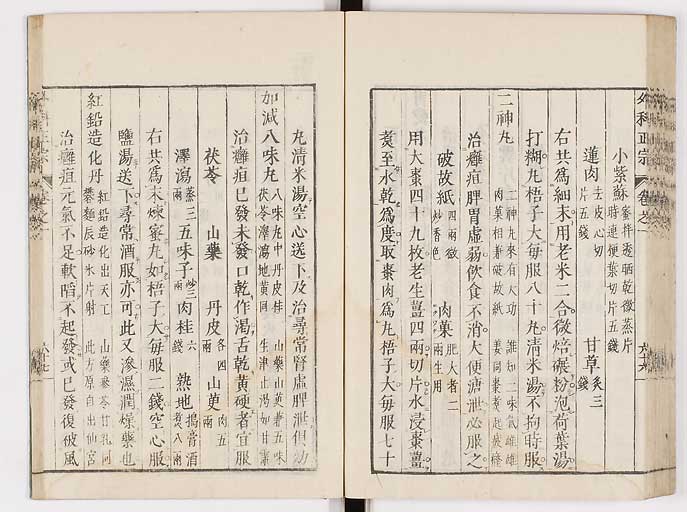 外科正宗
卷之一
六十六
小紫蘇 蜜拌透晒乾微蒸片時連梗葉切片五錢
蓮肉 去皮心切片五錢 甘草 炙三錢
右共爲細末用老米二合微焙碾粉泡荷葉湯
打糊丸梧子大每服八十丸清米湯不拘時服
二神丸 二神丸來有大功 誰知二味氣雄雄 肉菓相兼破故紙 薑同棗煮起疲癃
治癰疽脾胃虛弱飲食不消大便溏泄必服之
破故紙 四兩微炒香 肉菓 肥大者二兩生用
用大棗四十九枚老生薑四兩切片水浸棗薑
煮至水乾爲度取棗肉爲丸梧子大每服七十
丸清米湯空心送下及治尋常腎虛脾泄俱効
加減八味丸 八味丸中丹皮桂 山藥山萸兼五味 茯苓澤瀉地黃同 生津止渴如甘
治癰疽已發未發口乾作渴舌乾黃硬者宜服
茯苓 山藥 丹皮 各四兩 山萸 肉五兩
澤瀉 蒸三兩 五味子 炒三兩 肉桂 六錢 熟地 搗膏酒煮八兩
右共爲末煉蜜丸如梧子大每服二錢空心服
鹽湯送下尋常酒服亦可此又滲濕潤燥藥也
紅鉛造化丹 紅鉛造化出天工 山藥參苓甘乳同 麴辰砂氷片射 此方原自出仙宮
治癰疽元氣不足軟䧟不起發或已發復被風